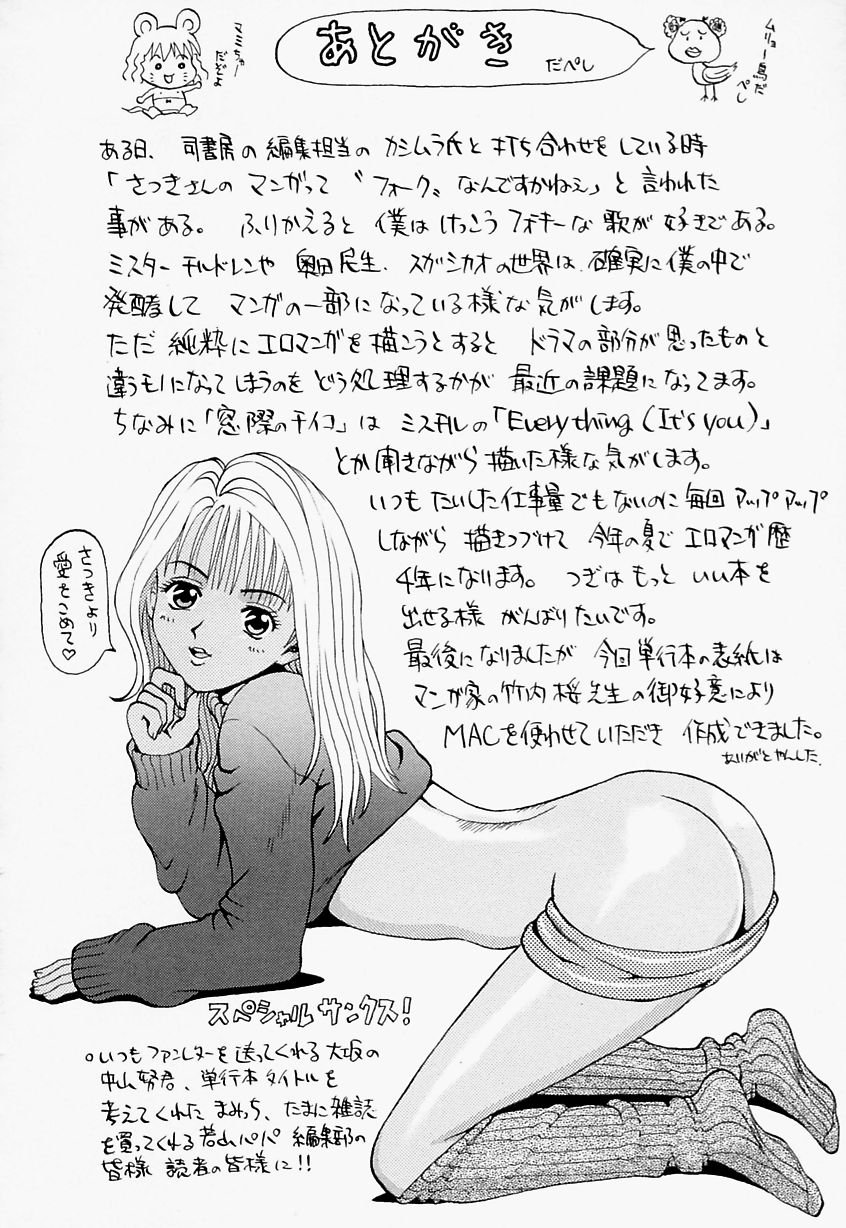 あとがき
だペし
ムリョー鳥だ
ペし
だぞよ
ある日、司書房の編集担当のカシムラ氏と打ち合わせをしている時
「さつきさんのマンガって〝フォーク〟なんですかねぇ」と言われた
事がある。ふりかえると僕はけっこうフォーキーな歌が好きである。
ミスターチルドレンや奥田民生、スガシカオの世界は、確実に僕の中で
発酵してマンガの一部になっている様な気がします。
ただ純粋にエロマンガを描こうとするとドラマの部分が思ったものと
違うモノになってしまうのをどう処理するかが最近の課題になってます。
ちなみに「窓際のチイコ」はミスチルの「Everything (It's you)」
とか聞きながら描いた様な気がします。
いつもたいした仕事量でもないのに毎回アップアップ
しながら描きつづけて今年の夏でエロマンガ歴
4年になります。つぎはもっといい本を
出せる様がんばりたいです。
最後になりましたが今回単行本の表紙は
マンガ家の竹内桜先生の御好意により
MACを使わせていただき作成できました。
ありがとやんした。
さつきより
愛をこめて♡
スペシャルサンクス!
○いつもファンレターを送ってくれる大阪の
中山努君、単行本タイトルを
考えてくれたまみっち、たまに雑誌
を買ってくれる若山パパ編集部の
皆様読者の皆様に!!